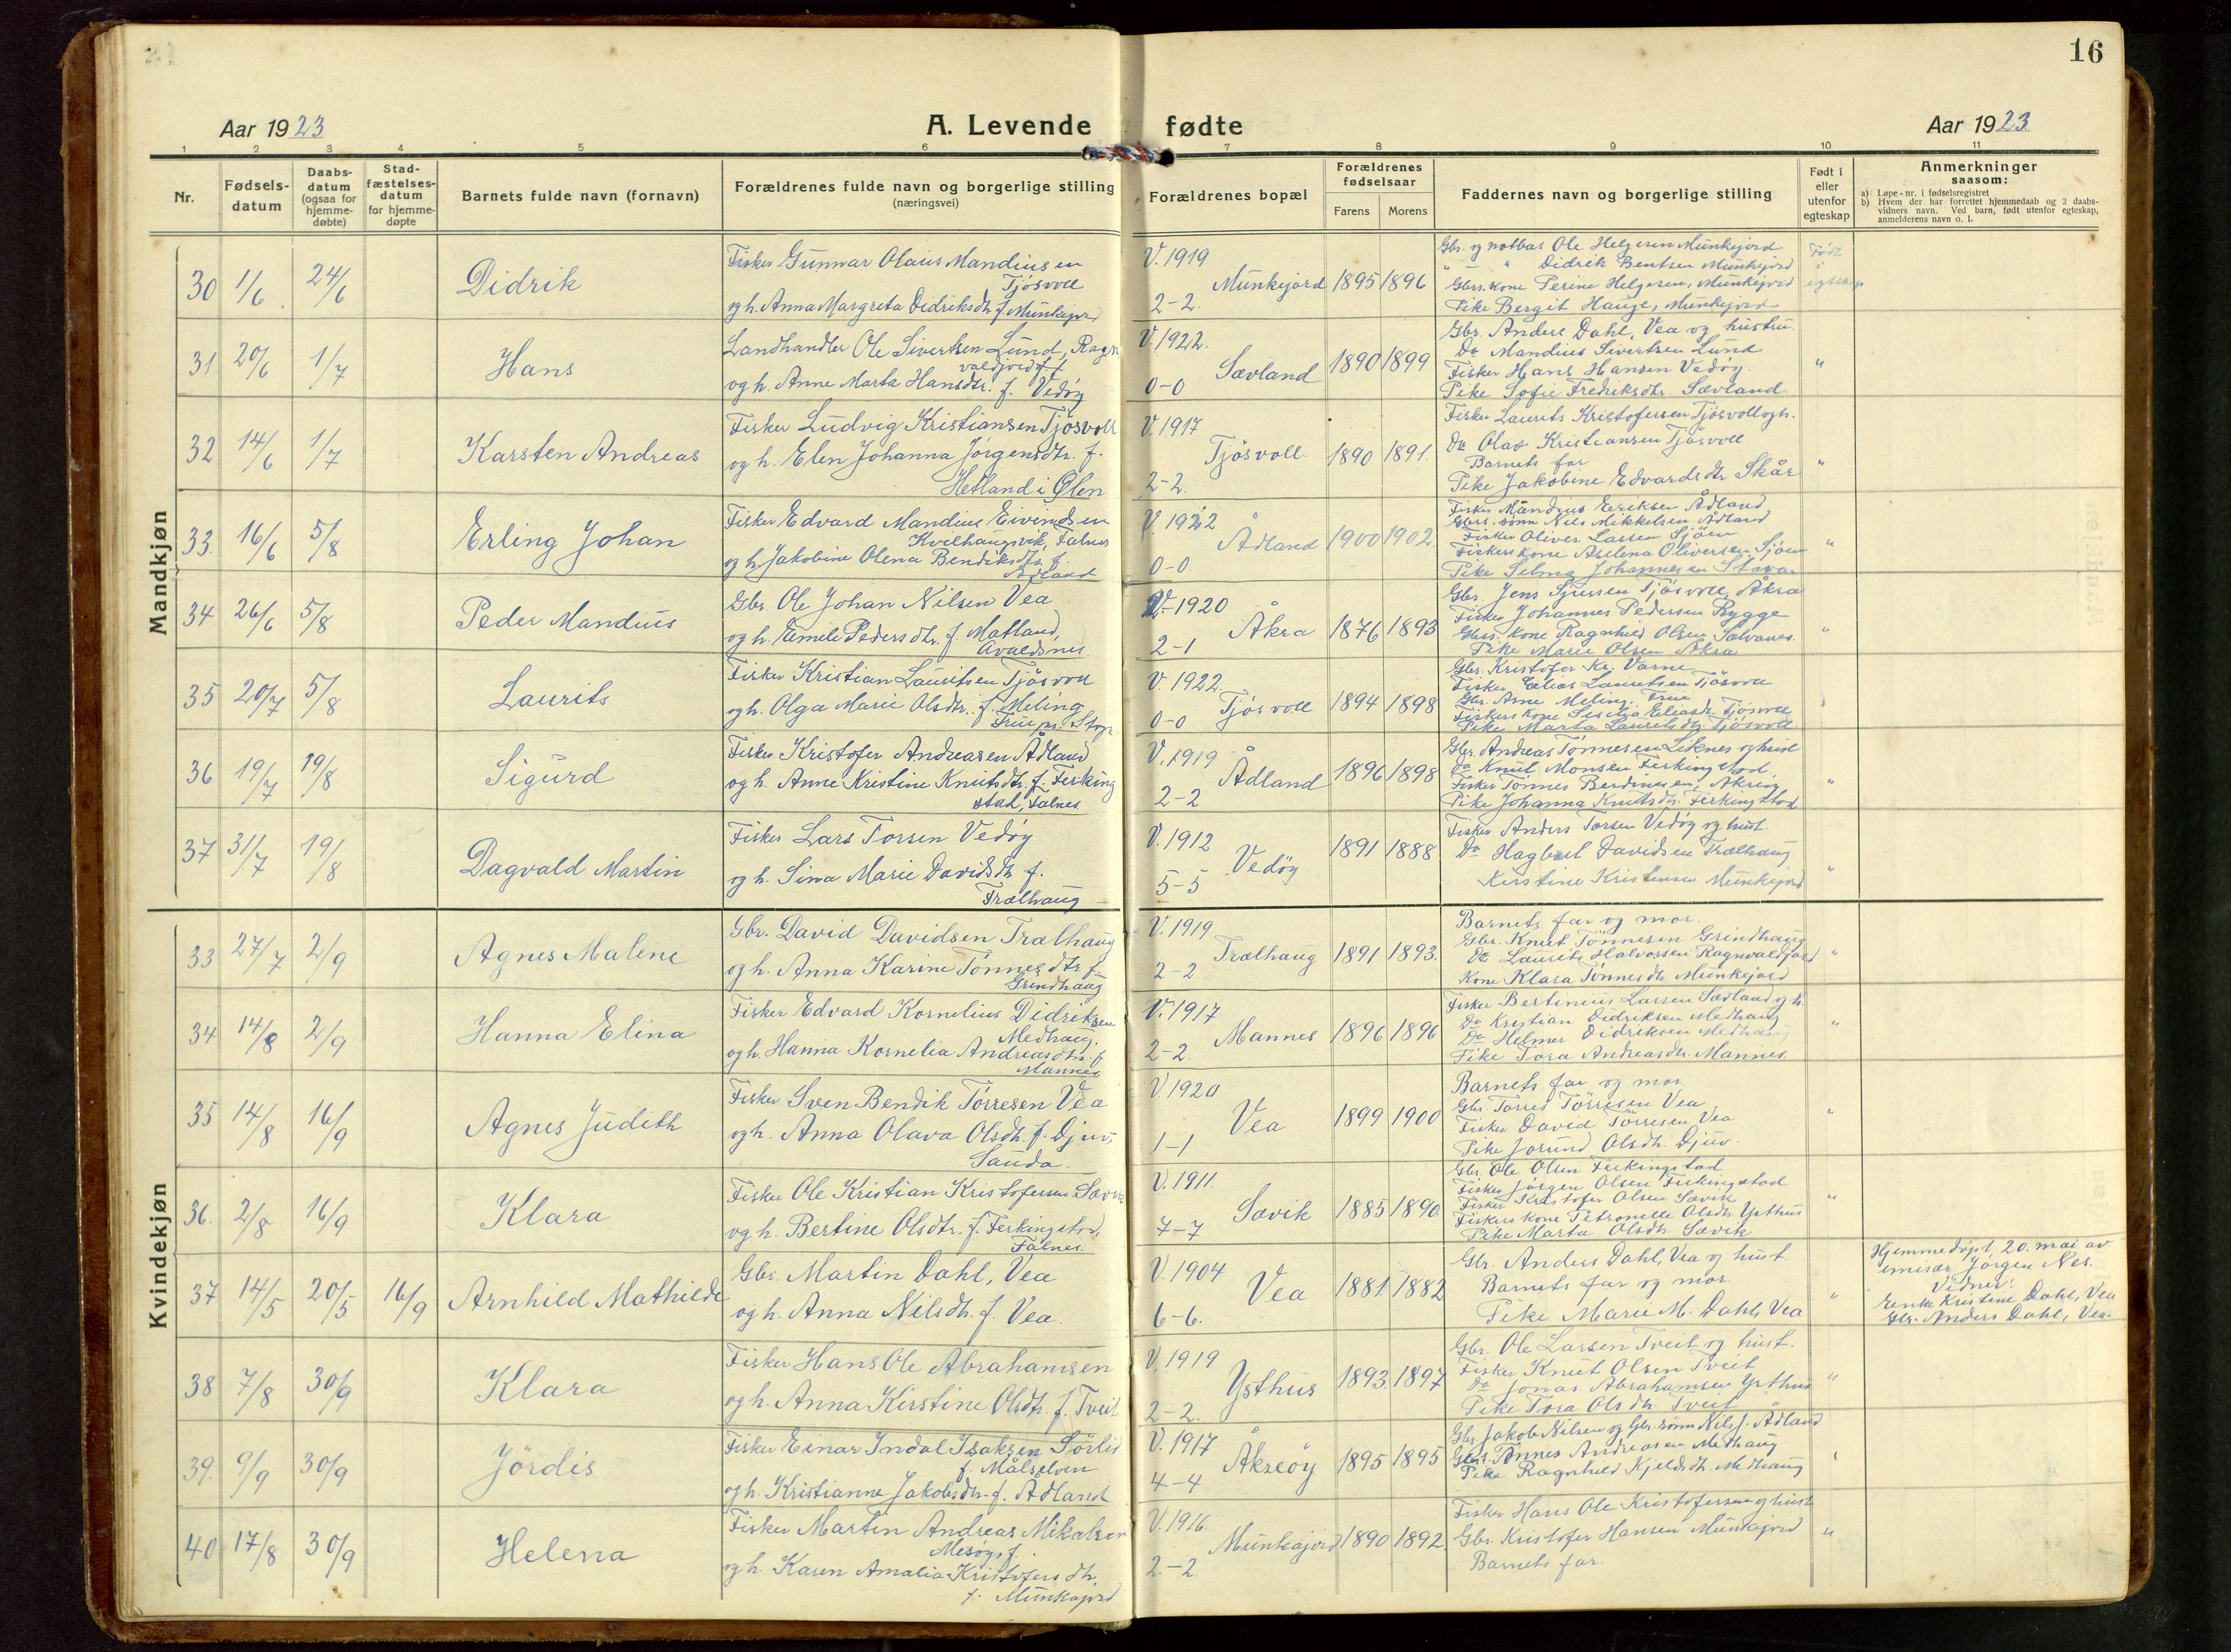 16
Aar 1923
A. Levende
fødte
Aar 1923
1 2 3 4 5 6 7 8 9 10 11
Nr.
Fødsels-
datum
Daabs-
datum
(ogsaa for
hjemme-
døbte)
Stad-
fæstelses-
datum
for hjemme-
døpte
Barnets fulde navn (fornavn)
Forældrenes fulde navn og borgerlige stilling
(næringsvei)
Forældrenes bopæl
Forældrenes
fødselsaar
Farens
Morens
Faddernes navn og borgerlige stilling
Født i
eller
utenfor
egteskap
Anmerkninger
saasom:
a) Løpe-nr. i fødselsregistret
b) Hvem der har forrettet hjemmedaab og 2 daabs-
vidners navn. Ved barn, født utenfor egteskap,
anmelderens navn o. l.
Mandkjøn
30 1/6 24/6 Didrik
Fisker Gunnar Olaus Mandiusen
Tjösvoll
og h. Anna Margreta Didriksdtr. f. Munkejord
V. 1919
2-2. Munkejord 1895 1896
Gbr. og notbas Ole Helgesen Munkejord
" — " Didrik Bentsen Munkejord
Gbrs. kone Perine Helgesen, Munkejord
Pike Bergit Hauge, Munkejord
Født
i
egteskap
31 20/6 1/7 Hans
Landhandler Ole Sivertsen Lund, Ragn
valdjord
og h. Anne Marta Hansdtr. f. Vedöy
V. 1922.
0-0 Sævland 1890 1899
Gbr. Anders Dahl, Vea og hustru.
Do Mandius Sivertsen Lund
Fisker Hans Hansen Vedöy.
Pike Sofie Fredriksdtr. Sævland
"
32 14/6 1/7 Karsten Andreas
Fisker Ludvig Kristiansen Tjösvoll
og h. Elen Johanna Jörgensdtr. f.
Hetland i Ølen
V. 1917
2-2. Tjösvoll. 1890 1891.
Fisker Laurits Kristofersen Tjösvoll og h.
Do Olav Kristiansen Tjösvoll
Barnets far
Pike Jakobine Edvardsdtr Skår
"
33. 16/6 5/8 Erling Johan
Fisker Edvard Mandius Eivindsen
Kvilhaugsvik, Falnes
og h. Jakobine Olena Bendiksdtr. f.
Ådland
V. 1922
0-0. Ådland 1900 1902.
Fisker Mandius Eriksen Ådland
Gbrs. sönn Nils Mikkelsen Ådland
Fisker Oliver Lassen Sjöen
Fiskers kone Aselena Oliversen, Sjöen
Pike Selma Johannesen Stava
"
34 26/6 5/8 Peder Mandius
Gbr. Ole Johan Nilsen Vea
og h. Emile Pedersdtr. f. Matland,
Avaldsnes
V. 1920
2-1 Åkra 1876 1893
Gbr. Jens Sjursen Tjösvoll, Åkra
Fisker Johannes Pedersen Rygge
Gbrs. kone Ragnhild Olsen Salvanes.
Pike Marie Olsen Åkra
"
35 20/7 5/8 Laurits
Fisker Kristian Lauritsen Tjösvoll
og h. Olga Marie Olsdtr. f. Meling
V. 1922
0-0 Tjösvoll 1894 1898
Gbr. Kristofer Kr. Varne
Fisker Elias Lauritsen Tjösvoll
Gbr. Arne Meling.
Fiskers kone Sesilja Eliasdtr. Tjösvoll
Pike Marta Lauritsdtr. Tjösvoll
36 19/7 19/8 Sigurd
Fisker Kristofer Andreasen Ådland
og h. Anne Kristine Knutsdtr. f. Ferking
stad, Falnes
V. 1919
2-2 Ådland 1896 1898
Gbr. Andreas Tönnesen Liknes og hust
do Knut Monsen Ferkingstad.
Fisker Tönnes Berdinesen, Åkreöy
Pike Johanna Knutsdtr. Ferkingstad
"
37 31/7 19/8 Dagvald Martin
Fisker Lars Torsen Vedöy
og h. Sina Marie Davidsdtr f.
Trælhaug
V. 1912
5-5 Vedöy 1891 1888
Fisker Anders Torsen Vedöy og hust.
Do Hagbart Davidsen Trælhaug
Kirstine Kristensen Munkejord
"
Kvindekjøn
33 27/7 2/9 Agnes Malene
Gbr. David Davidsen Trælhaug
og h. Anna Karine Tönnesdtr. f.
Grindhaug
V. 1919
2-2 Trælhaug 1891 1893.
Barnets far og mor.
Gbr. Knut Tönnesen Grindhaug
Do Laurits Halvorsen Ragnvaldjord
Kone Klara Tönnesdtr Munkejord
"
34 14/8 2/9 Hanna Elina
Fisker Edvard Kornelius Didriksen
Medhaug.
og h. Hanna Kornelia Andreasdtr. f.
Mannes
V. 1917
2-2. Mannes 1896 1896
Fisker Bertinius Larsen Sævland og h.
Do Kristian Didriksen Medhaug
Do Helmer Didriksen Medhaug
Pike Tora Andreasdtr. Mannes
"
35 14/8 16/9 Agnes Judith
Fisker Sven Bendik Törresen Vea
og h. Anna Olava Olsdtr. f. Djuv,
Sauda.
V. 1920
1-1 Vea 1899 1900
Barnets far og mor
Gbr. Torres Törresen Vea
Fisker David Törresen Vea
Pike Jorund Olsdtr. Djuv.
"
36. 2/8 16/9 Klara
Fisker Ole Kristian Kristofersen Sævik
og h. Bertine Olsdtr. f. Ferkingstad,
Falnes.
V. 1911.
7-7 Sævik 1885 1890.
Gbr. Ole Olsen Ferkingstad
Fisker Jörgen Olsen Ferkingstad
Fisker Kristofer Olsen Sævik
Fiskers kone Petronelle Olsdtr Ysthus
Pike Marta Olsdtr. Sævik
"
37 14/5 20/5 16/9 Arnhild Mathilde
Gbr. Martin Dahl, Vea
og h. Anna Nilsdtr. f. Vea.
V. 1904
6-6. Vea 1881 1882
Gbr. Anders Dahl, Vea og hust.
Barnets far og mor.
Pike Marie M. Dahl, Vea
"
Hjemmedöpt, 20. mai av
emisær Jörgen Nes.
Vidner:
Enke Kristine Dahl, Vea
Gbr. Anders Dahl, Vea.
38 7/8 30/9 Klara
Fisker Hans Ole Abrahamsen
og h. Anna Kirstine Olsdtr. f. Tveit
V. 1919
2-2. Ysthus 1893. 1897
Gbr. Ole Larsen Tveit og hust.
Fisker Knut Olsen Tveit
do Jonas Abrahamsen Ysthus
Pike Tora Olsdtr. Tveit
"
39. 9/9 30/9 Jördis
Fisker Einar Indal Isaksen Sörlid
f. Målselven
og h. Kristianne Jakobsdtr. f. Ådland
V. 1917
4-4 Åkreöy 1895 1895
Gbr. Jakob Nilsen og Gbr. sönn Nils J. Ådland
Gbrs. Tönnes Andreasen Medhaug
Pike Ragnhild Kjeldsdtr Medhaug
"
40 17/8 30/9 Helena
Fisker Martin Andreas Mikalsen
Mesöy, f.
og h. Karen Amalia Kristofersdtr.
f. Munkajord
V. 1916.
2-2 Munkajord 1890 1892.
Fisker Hans Ole Kristofersen og hust
Gbr. Kristofer Hansen Munkajord
Barnets far.
"